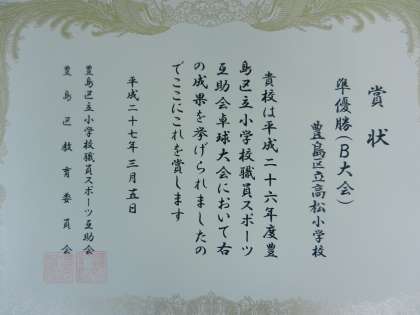 賞状
準優勝(B大会)
豊島区立高松小学校
貴校は平成二十六年度豊
島区立小学校職員スポーツ
互助会卓球大会において右
の成果を挙げられましたの
でここにこれを賞します
平成二十七年三月五日
豊島区立小学校職員スポーツ互助会
豊島区教育委員会